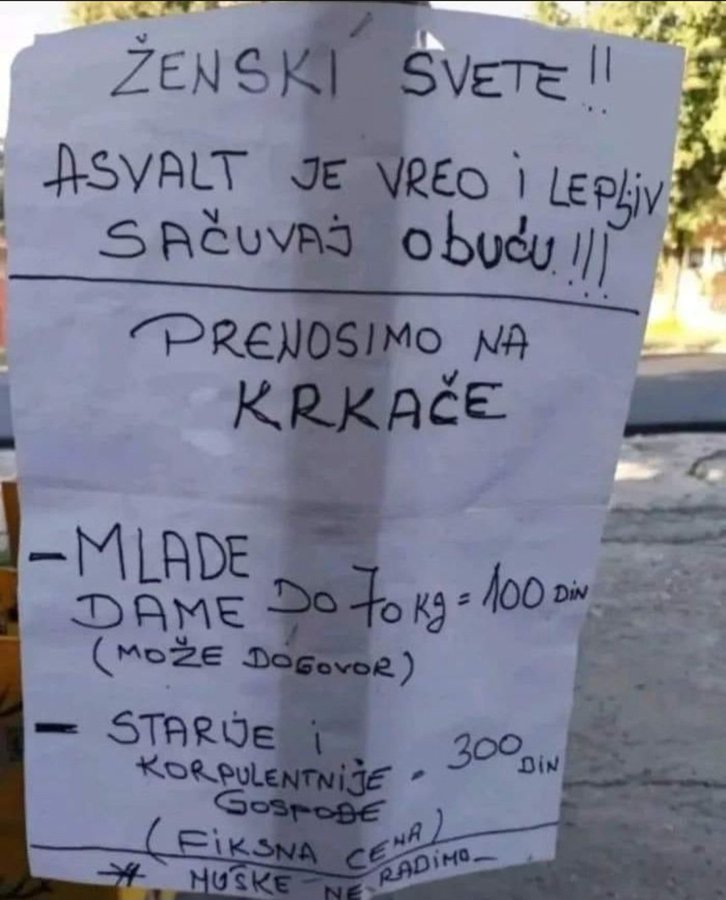 ŽENSKI SVETE!!
ASVALT JE VREO i LEPLjiV
SAČUVAJ obuću!!!
PRENOSIMO NA
KRKAČE
- MLADE
DAME DO 70 kg = 100 DiN
(MOŽE DOGOVOR)
- STARIJE i
KORPULENTNiJE - 300 DiN
GOSPOĐE
(FiKSNA CENA)
* MUŠKE NE RADiMO-